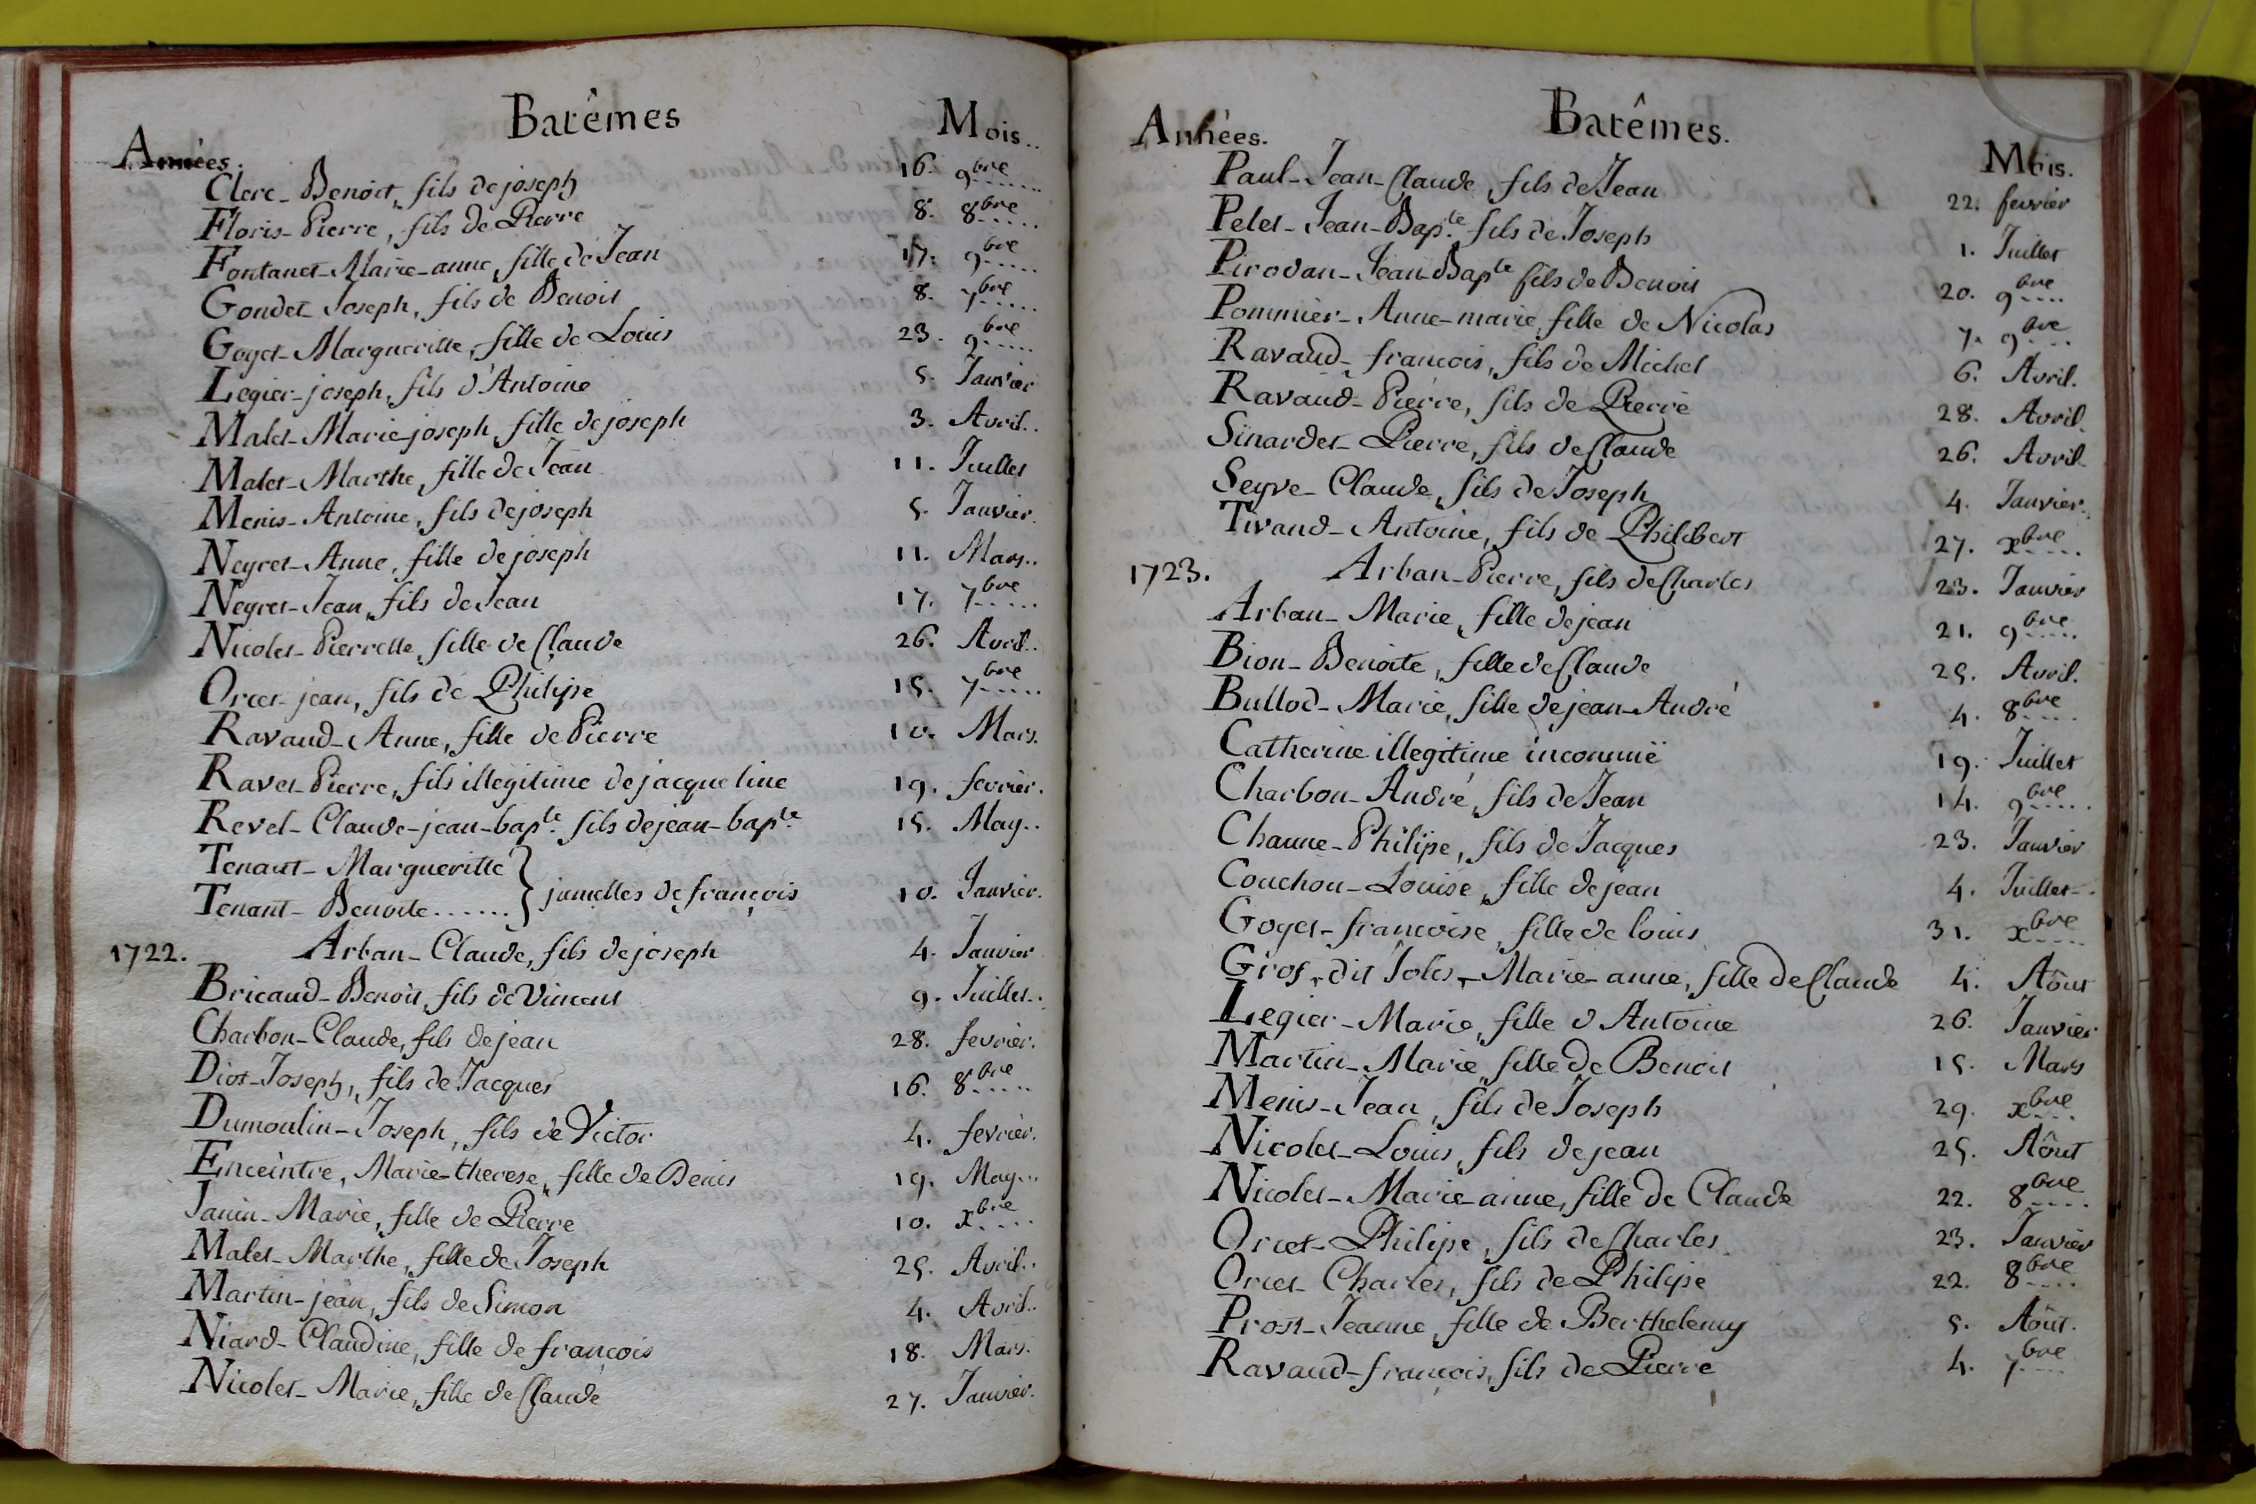 Batêmes
Années. Mois..
Clerc_ Benoit, fils de joseph 16. 9bre
Floris_ Pierre, fils de Pierre 8. 8bre
Fontanet_ Marie_anne, fille de Jean 17. 9bre
Gondet_ Joseph, fils de Benoit 8. 7bre
Goyet_ Margueritte, fille de Louis 23. 9bre
Legier_ joseph, fils d'Antoine 5. Janvier
Malet_ Marie_joseph, fille de joseph 3. Avril..
Malet_ Marthe, fille de Jean 11. Juillet
Menis_ Antoine, fils de joseph 5. Janvier.
Neyret_ Anne, fille de joseph 11. Mars..
Neyret_ Jean, fils de Jean 17. 7bre
Nicolet_ Pierrette, fille de Claude 26. Avril..
Orcet_ jean, fils de Philipe 15. 7bre
Ravaud_ Anne, fille de Pierre 10. Mars.
Ravet_ Pierre, fils illegitime de jacqueline 19. fevrier.
Revel_ Claude_jean_bapte. fils de jean_bapte. 15. May..
Tenant_ Margueritte
Tenant_ Benoite...... } jumelles de françois 10. Janvier.
1722. Arban_ Claude, fils de joseph 4. Janvier
Bricaud_ Benoit, fils de Vincent 9. Juillet..
Charbon_ Claude, fils de jean 28. fevrier.
Diot_ Joseph, fils de Jacques 16. 8bre
Dumoulin_ Joseph, fils de Victor 4. fevrier.
Enceintre, Marie_therese, fille de Denis 19. May...
Janin_ Marie, fille de Pierre 10. xbre
Malet_ Marthe, fille de Joseph 25. Avril..
Martin_ jean, fils de Simon 4. Avril..
Niard_ Claudine, fille de françois 18. Mars.
Nicolet_ Marie, fille de Claude 27. Janvier.
Batêmes.
Années. Mois.
Paul_ Jean_Claude, fils de Jean 22. fevrier
Pelet_ Jean_Bapte. fils de Joseph 1. Juillet
Pirodan_ Jean_Bapte fils de Benoit 20. 9bre
Pommier_ Anne_marie, fille de Nicolas 7. 9bre
Ravaud_ francois, fils de Michel 6. Avril.
Ravaud_ Pierre, fils de Pierre 28. Avril.
Sinardet_ Pierre, fils de Claude 26. Avril
Seyve_ Claude, fils de Joseph 4. Janvier.
Tivaud_ Antoine, fils de Philibert 27. xbre
1723. Arban_ Pierre, fils de Charles 23. Janvier
Arban_ Marie, fille de jean 21. 9bre
Bion_ Benoite, fille de Claude 25. Avril.
Bullod_ Marie, fille de jean_André 4. 8bre
Catherine illegitime inconnuë 19. Juillet
Charbon_ André, fils de Jean 14. 9bre
Channe_ Philipe, fils de Jacques 23. Janvier
Couchou_ Louise, fille de jean 4. Juillet
Goyet_ francoise, fille de louis 31. xbre
Gros, dit Jolis, Marie_anne, fille de Claude 4. Aôut
Legier_ Marie, fille d'Antoine 26. Janvier
Martin_ Marie, fille de Benoit 15. Mars
Menis_ Jean, fils de Joseph 29. xbre
Nicolet_ Louis, fils de jean 25. Aôut
Nicolet_ Marie_anne, fille de Claude 22. 8bre
Orcet_ Philipe, fils de Charles 23. Janvier
Orcet_ Charles, fils de Philipe 22. 8bre
Prost_ Jeanne, fille de Berthelemy 5. Aôut.
Ravaud_ françois, fils de Pierre 4. 7bre